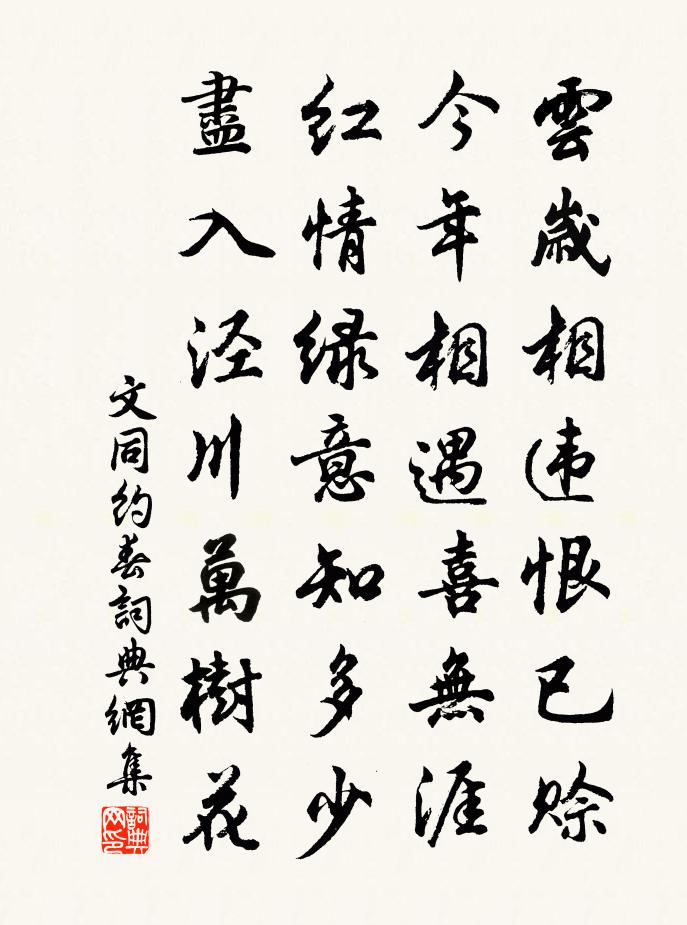 雲歲相違恨已賒
今年相遇喜無涯
紅情綠意知多少
盡入涇川萬樹花
文同約春詞典網集
詞典网印